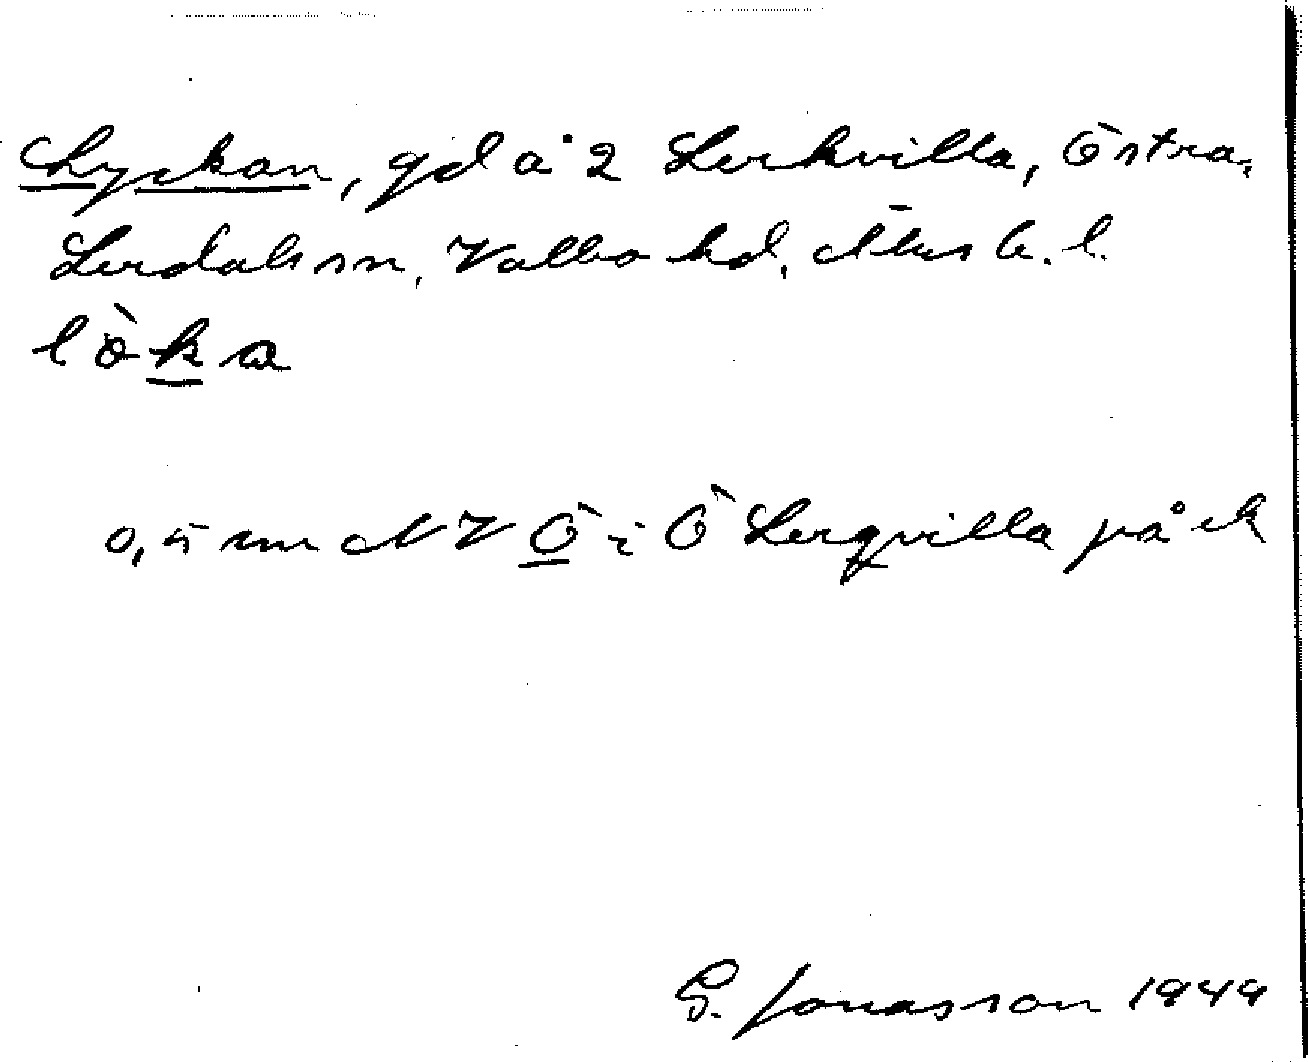 Lyckan, gd å 2 Lerkvilla, Östra,
Lerdals sn, Valbo hd, Älvsb. l.
lö̀ka
0,5 km NV Ö i Ö Lerqvilla på ek
G. Jonasson 1949